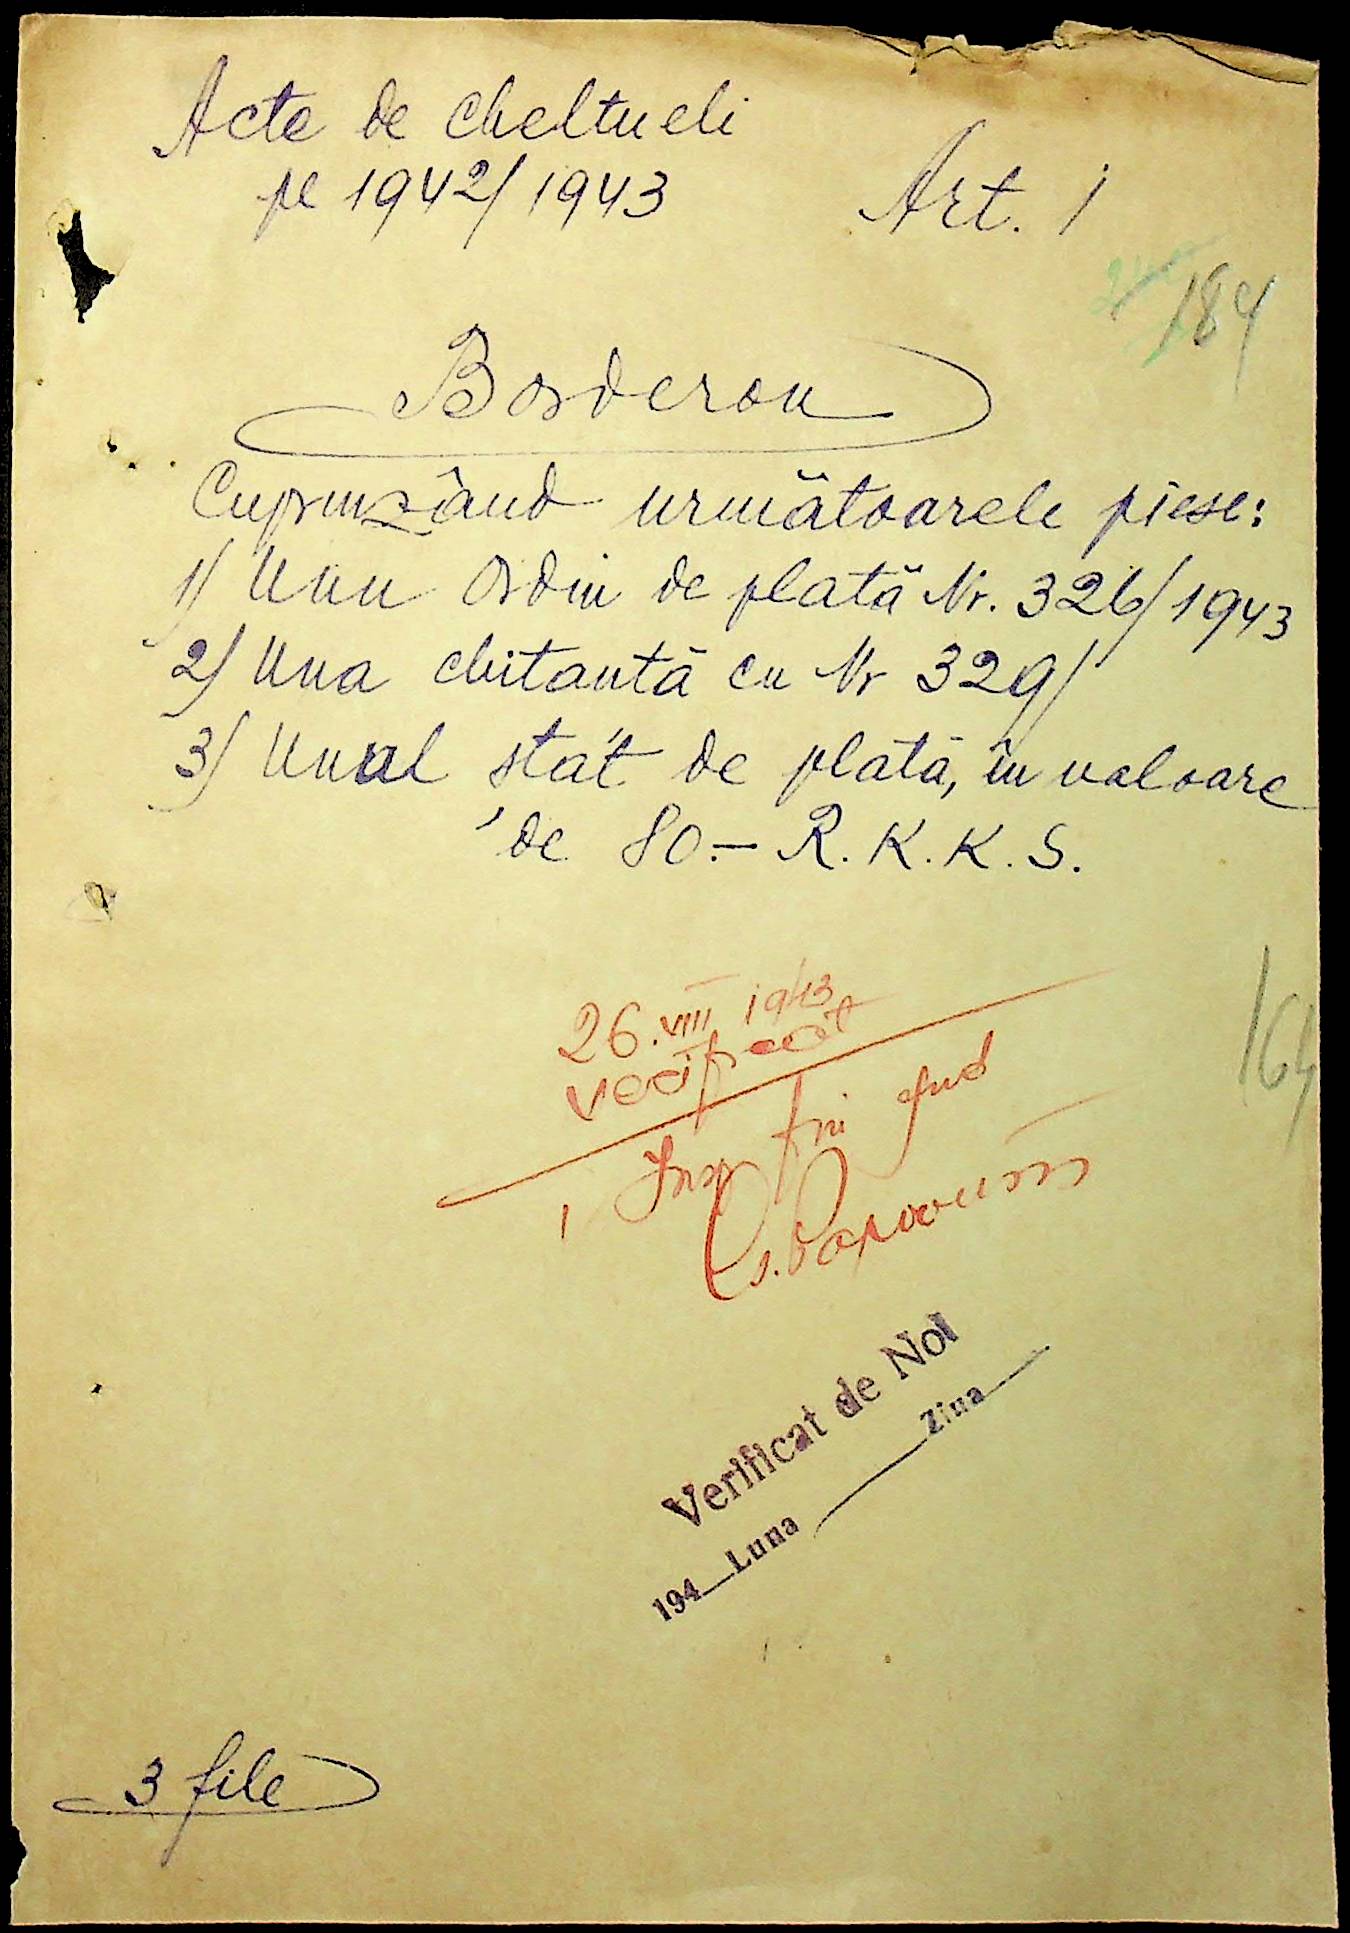 Acte de cheltueli
pe 1942/1943
Art. 1
184
Borderou
Cuprinzând următoarele piese:
1) Unu Ordin de plată Nr. 326/1943
2) Una chitantă cu Nr 329/
3) Unul stat de plată, în valoare
de 80.- R. K. K. S.
26.VIII 1943
verificat
164
Insp fin
Verificat de Noi
194 Luna Ziua
3 file